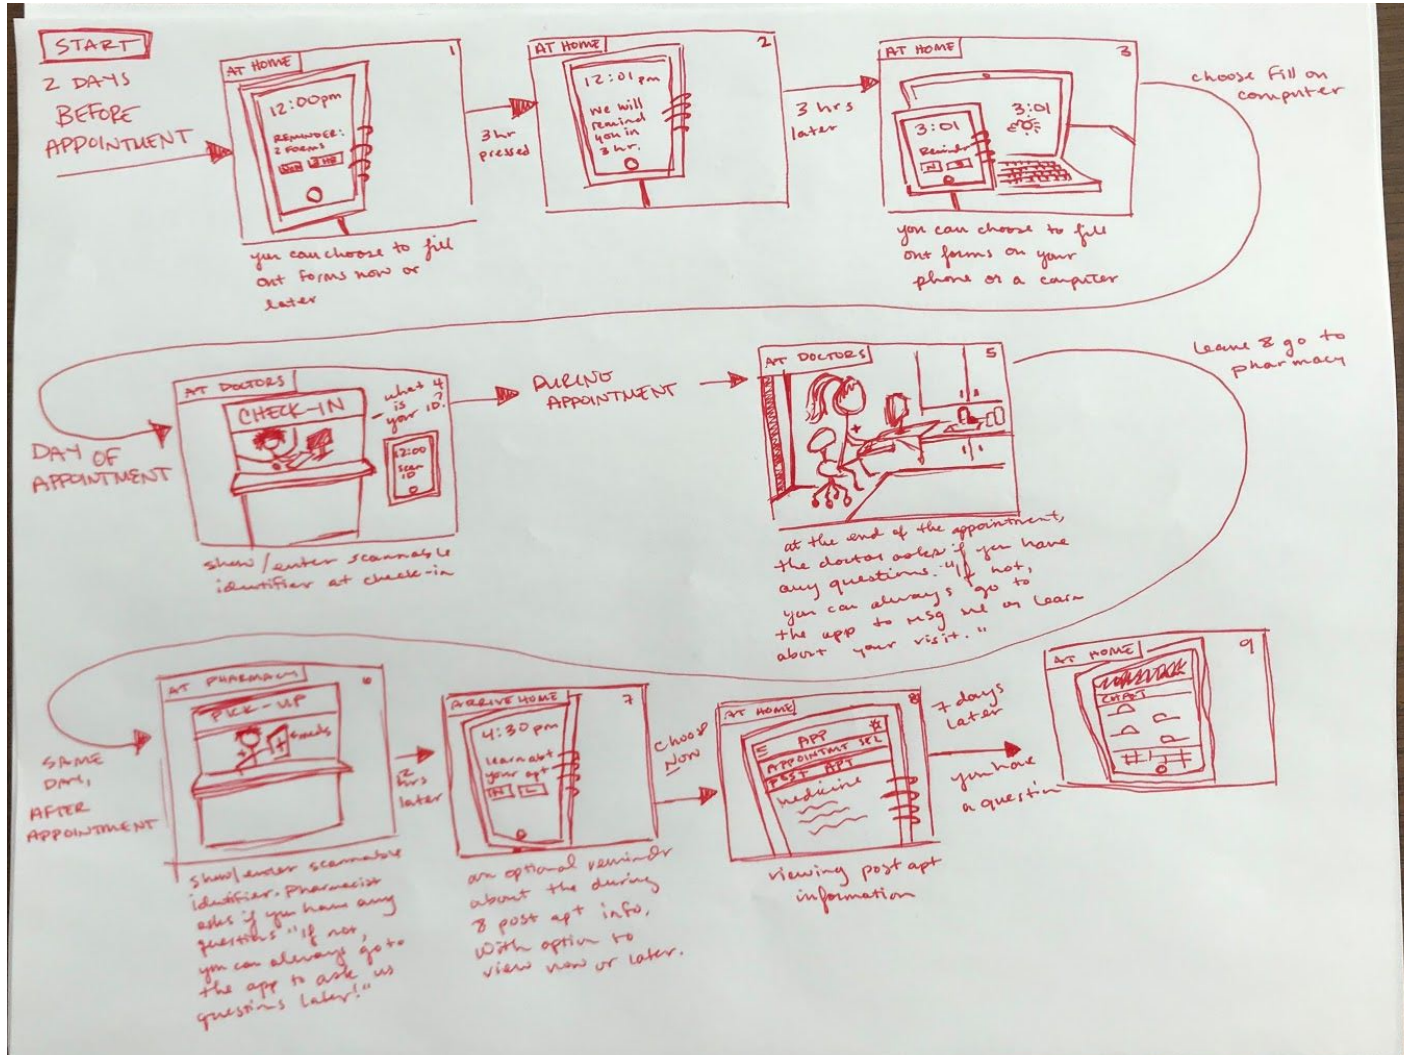 START
2 DAYS
BEFORE
APPOINTMENT
AT HOME
1
12:00pm
REMINDER:
2 FORMS
NOW 3 HR
you can choose to fill
out forms now or
later
3hr
pressed
AT HOME
2
12:01 pm
we will
remind
you in
3 hr.
3 hrs
later
AT HOME
3
3:01
3:01
Reminder
N 3
you can choose to fill
out forms on your
phone or a computer
choose Fill on
computer
DAY OF
APPOINTMENT
AT DOCTORS
4
CHECK-IN
what
is
your ID?
12:00
scan
ID
show/enter scannable
identifier at check-in
DURING
APPOINTMENT
AT DOCTORS
5
at the end of the appointment,
the doctor asks if you have
any questions. "If not,
you can always go to
the app to msg me or learn
about your visit."
leave & go to
pharmacy
SAME
DAY,
AFTER
APPOINTMENT
AT PHARMACY
6
PICK-UP
meds
show/enter scannable
identifier. Pharmacist
asks if you have any
questions "If not,
you can always go to
the app to ask us
questions later!"
2
hrs
later
ARRIVE HOME
7
4:30 pm
learn abt
your apt
N L
an optional reminder
about the during
& post apt info,
with option to
view now or later.
choose
Now
AT HOME
8
APP
APPOINTMT SEL
POST APT
medicine
viewing post apt
information
7 days
later
you have
a question
AT HOME
9
CHAT